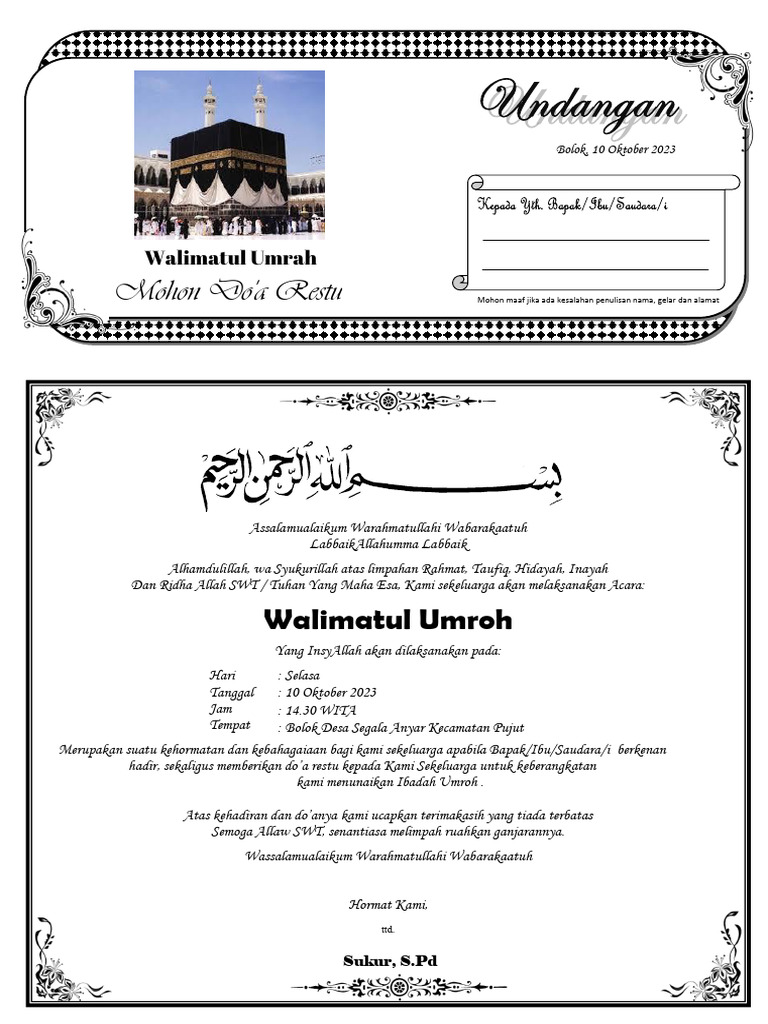 Undangan
Bolok, 10 Oktober 2023
Kepada Yth. Bapak/Ibu/Saudara/i
Mohon maaf jika ada kesalahan penulisan nama, gelar dan alamat
Walimatul Umrah
Mohon Do'a Restu
بِسْمِ اللهِ الرَّحْمنِ الرَّحِيْمِ
Assalamualaikum Warahmatullahi Wabarakaatuh
LabbaikAllahumma Labbaik
Alhamdulillah, wa Syukurillah atas limpahan Rahmat, Taufiq, Hidayah, Inayah
Dan Ridha Allah SWT / Tuhan Yang Maha Esa, Kami sekeluarga akan melaksanakan Acara:
Walimatul Umroh
Yang InsyAllah akan dilaksanakan pada:
Hari : Selasa
Tanggal : 10 Oktober 2023
Jam : 14.30 WITA
Tempat : Bolok Desa Segala Anyar Kecamatan Pujut
Merupakan suatu kehormatan dan kebahagaiaan bagi kami sekeluarga apabila Bapak/Ibu/Saudara/i berkenan
hadir, sekaligus memberikan do'a restu kepada Kami Sekeluarga untuk keberangkatan
kami menunaikan Ibadah Umroh .
Atas kehadiran dan do'anya kami ucapkan terimakasih yang tiada terbatas
Semoga Allaw SWT, senantiasa melimpah ruahkan ganjarannya.
Wassalamualaikum Warahmatullahi Wabarakaatuh
Hormat Kami,
ttd.
Sukur, S.Pd